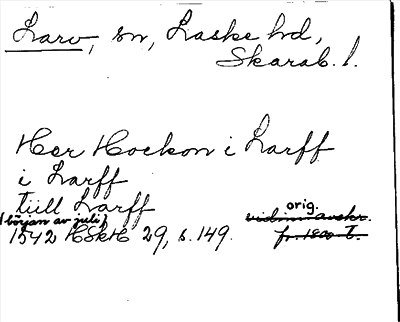 Larv, sn, Laske hd,
Skarab. l.
Her Hockon i Larff
i Larff
tiill Larff
(början av juli) orig.
1542 HSkH 29, s. 149. vidim. avskr.
fr. 1800-t.